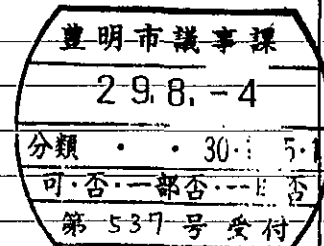 豊明市議事課
29.8.-4
分類 ・ ・ 30・ 5・1
可・否・一部否・ 否
第537号受付